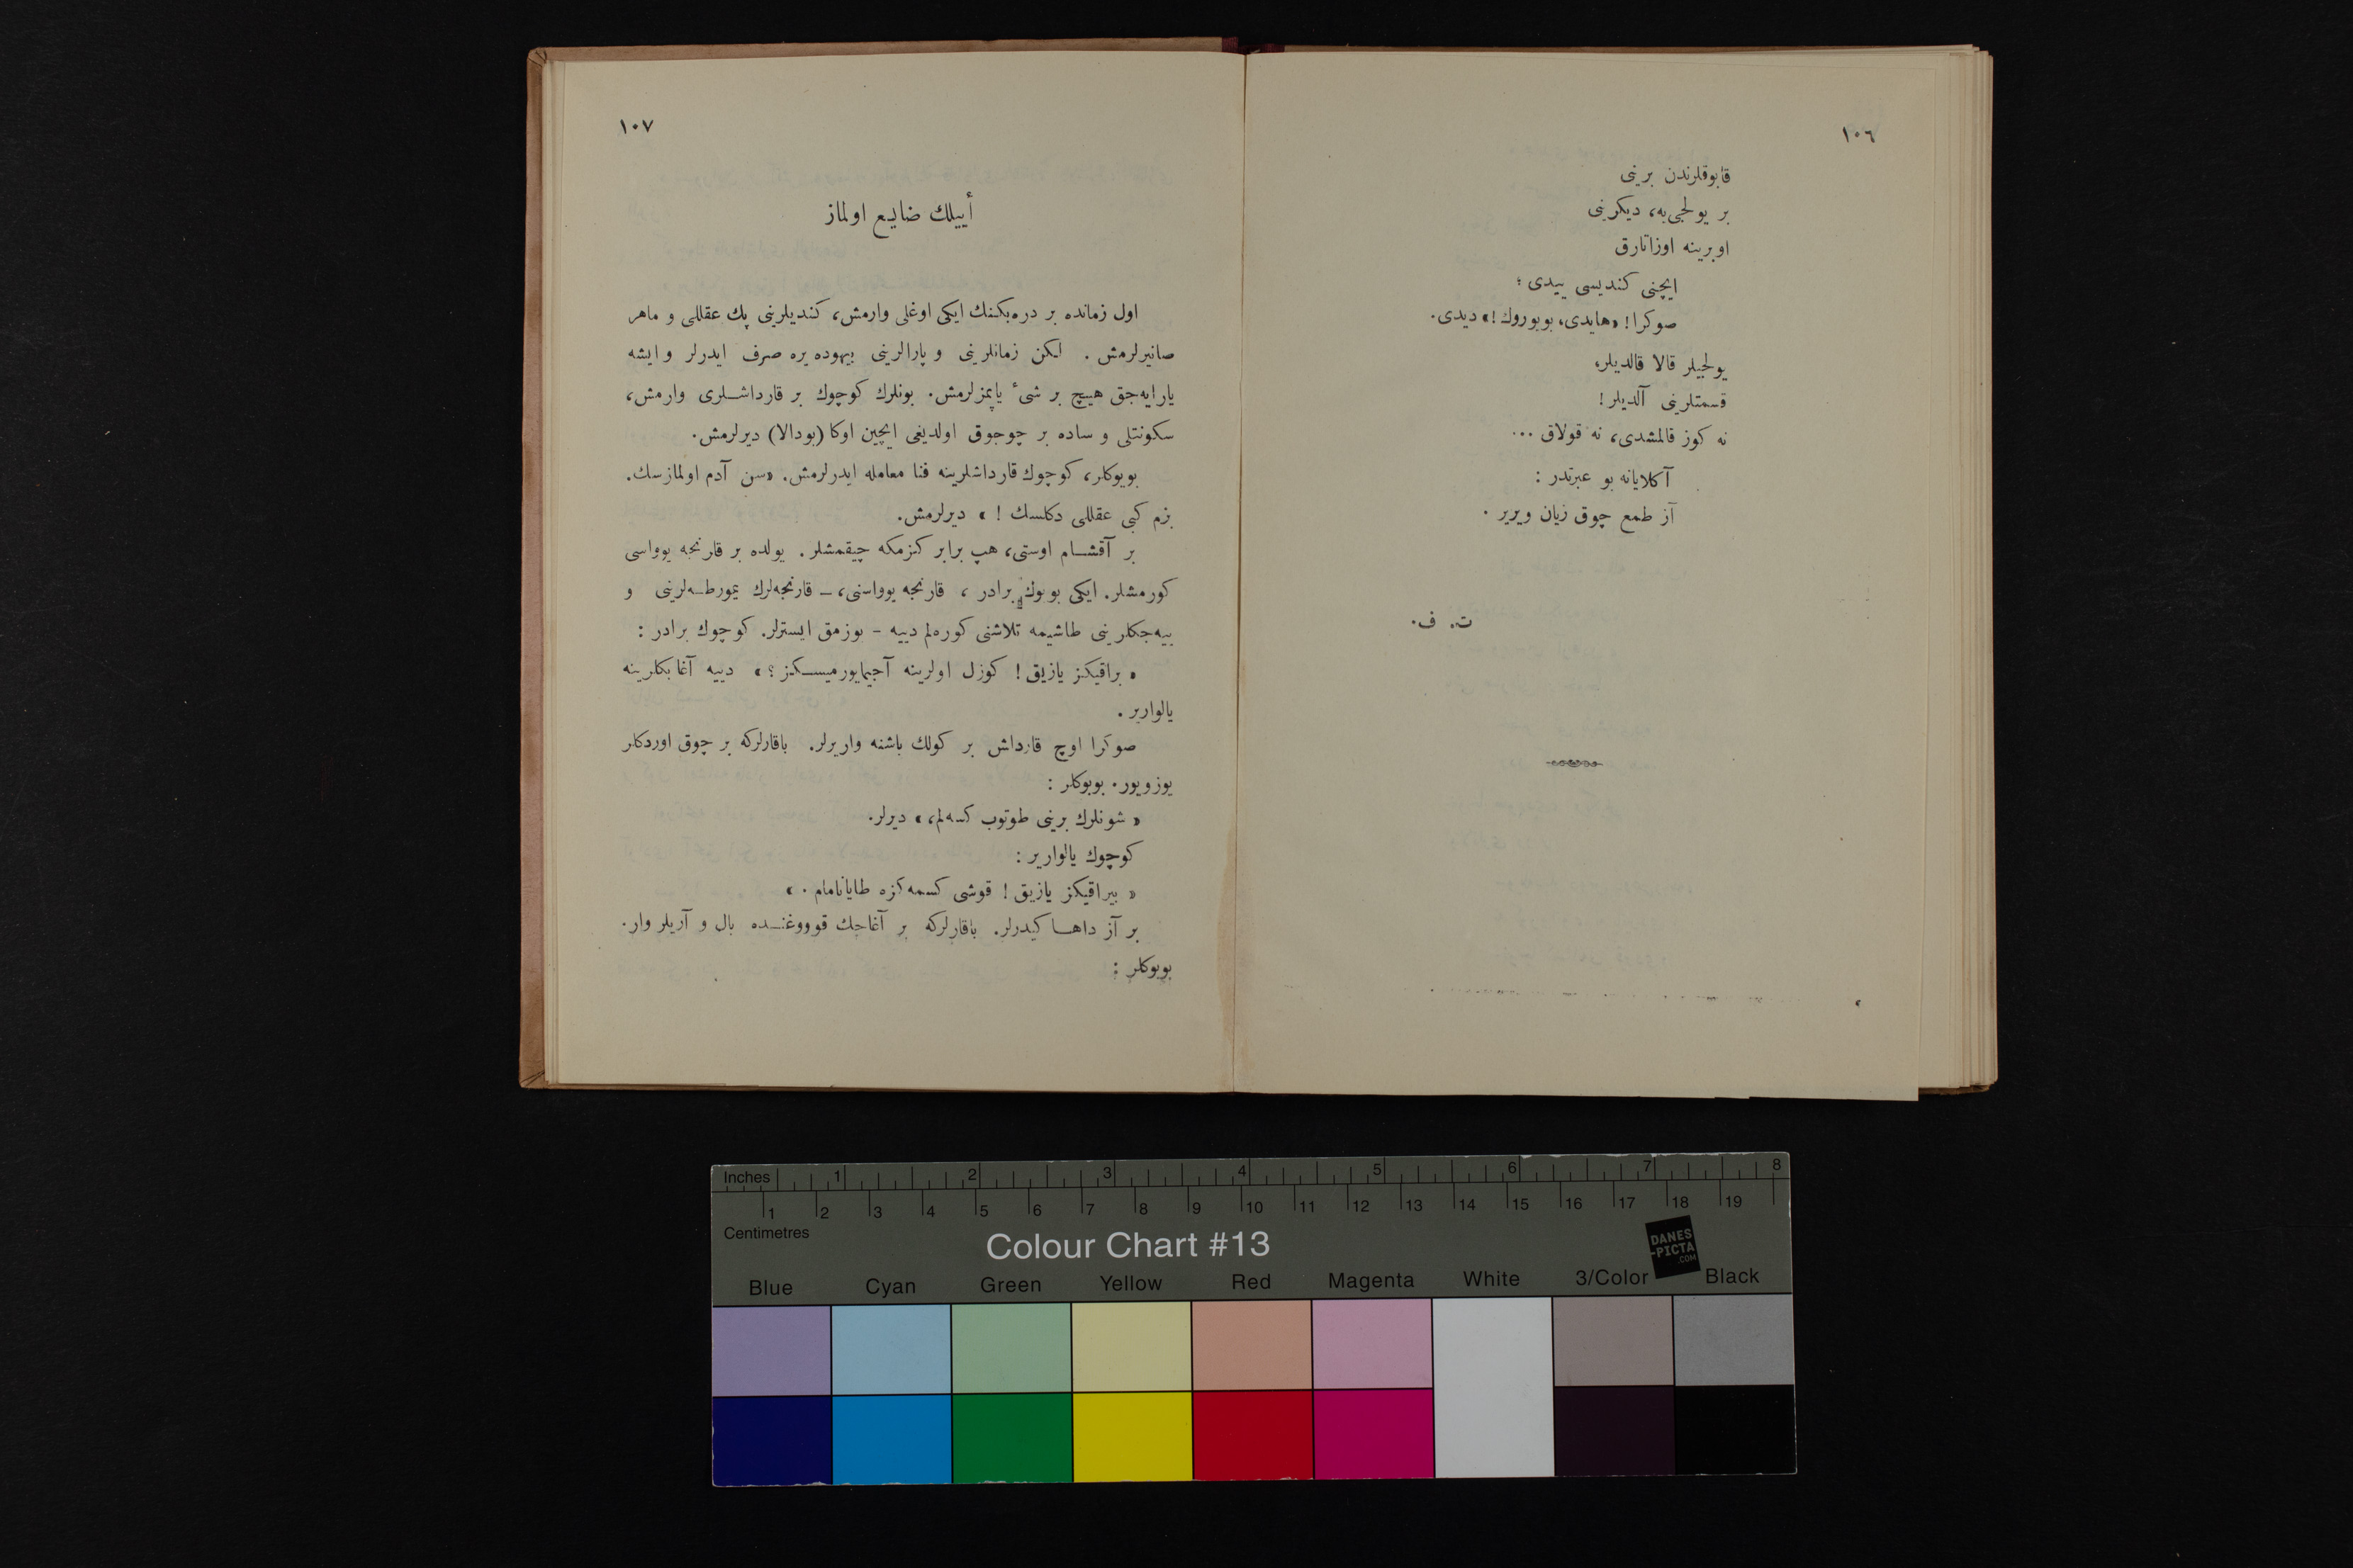 ١٠٦
قابوقلرندن برینی
بر یولجی‌یه، دیکرینی
اوبرینه اوزاتارق
ایچنی کندیسی ییدی ؛
صوکرا! «هایدی، بویوروك!» دیدی.
یولجیلر قالا قالدیلر،
قسمتلرینی آلدیلر!
نه کوز قالمشدی، نه قولاق ...
آکلایانه بو عبرتدر :
آز طمع چوق زیان ویریر .
ت. ف.
١٠٧
أییلك ضایع اولماز
اول زمانده بر دره‌بکنك ایکی اوغلی وارمش، کندیلرینی پك عقللی و ماهر
صانیرلرمش . لکن زمانلرینی و پارالرینی بیهوده یره صرف ایدرلر و ایشه
یارایه‌جق هیچ بر شیٴ یاپمزلرمش. بونلرك کوچوك بر قارداشلری وارمش،
سکونتلی و ساده بر چوجوق اولدیغی ایچین اوکا (بودالا) دیرلرمش.
بویوکلر، کوچوك قارداشلرینه فنا معامله ایدرلرمش. «سن آدم اولمازسك.
بزم کبی عقللی دکلسك ! » دیرلرمش.
بر آقشام اوستی، هپ برابر کزمکه چیقمشلر. یولده بر قارنجه یوواسی
کورمشلر. ایکی بویوك برادر ، قارنجه یوواسنی، ـ قارنجه‌لرك یمورطه‌لرینی و
ییه‌جکلرینی طاشیمه تلاشنی کوره‌لم دییه - بوزمق ایسترلر. کوچوك برادر :
« براقیکز یازیق! کوزل اولرینه آجیمایورمیسکز ؟ » دییه آغابکلرینه
یالواریر .
صوکرا اوچ قارداش بر کولك باشنه واریرلر. باقارلرکه بر چوق اوردکلر
یوزویور. بویوکلر :
« شونلرك برینی طوتوب کسه‌لم، » دیرلر.
کوچوك یالواریر :
« بیراقیکز یازیق! قوشی کسمه‌کزه طایانامام . »
بر آز داها کیدرلر. باقارلرکه بر آغاجك قووغنده بال و آریلر وار.
بویوکلر :
Inches 1 2 3 4 5 6 7 8
1 2 3 4 5 6 7 8 9 10 11 12 13 14 15 16 17 18 19
Centimetres
Colour Chart #13
DANES
-PICTA
.COM
Blue Cyan Green Yellow Red Magenta White 3/Color Black